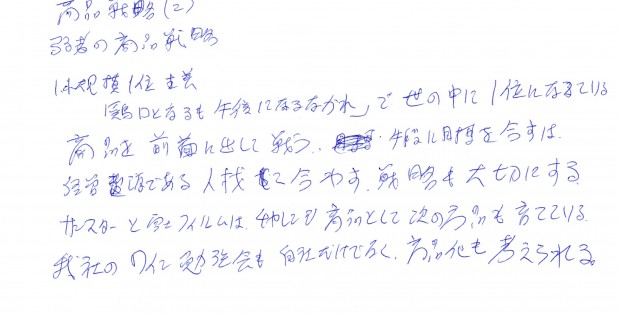 商品戦略(2)
弱者の商品戦略
1.小規模1位主義
「鶏口となるも午後になるなかれ」で世の中に1位になるている
商品を前面に出して戦う、手段に目標を合すは、
経営資源である人材を合わす、戦略も大切にする
サンスターと富士フィルムは、商品として次の商品も育てている
我社のワイン勉強会も自社だけでなく、商品化も考えられる。